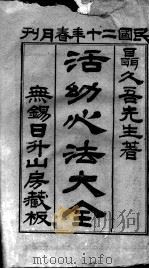 民國二十年春月刊
聶久吾先生著
活幼心法大全
無錫日升山房藏板
http://www.mtoou.info